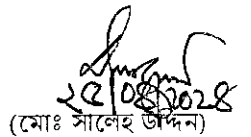 ২৫/০৪/২০২৪
(মোঃ সালেহ উদ্দিন)